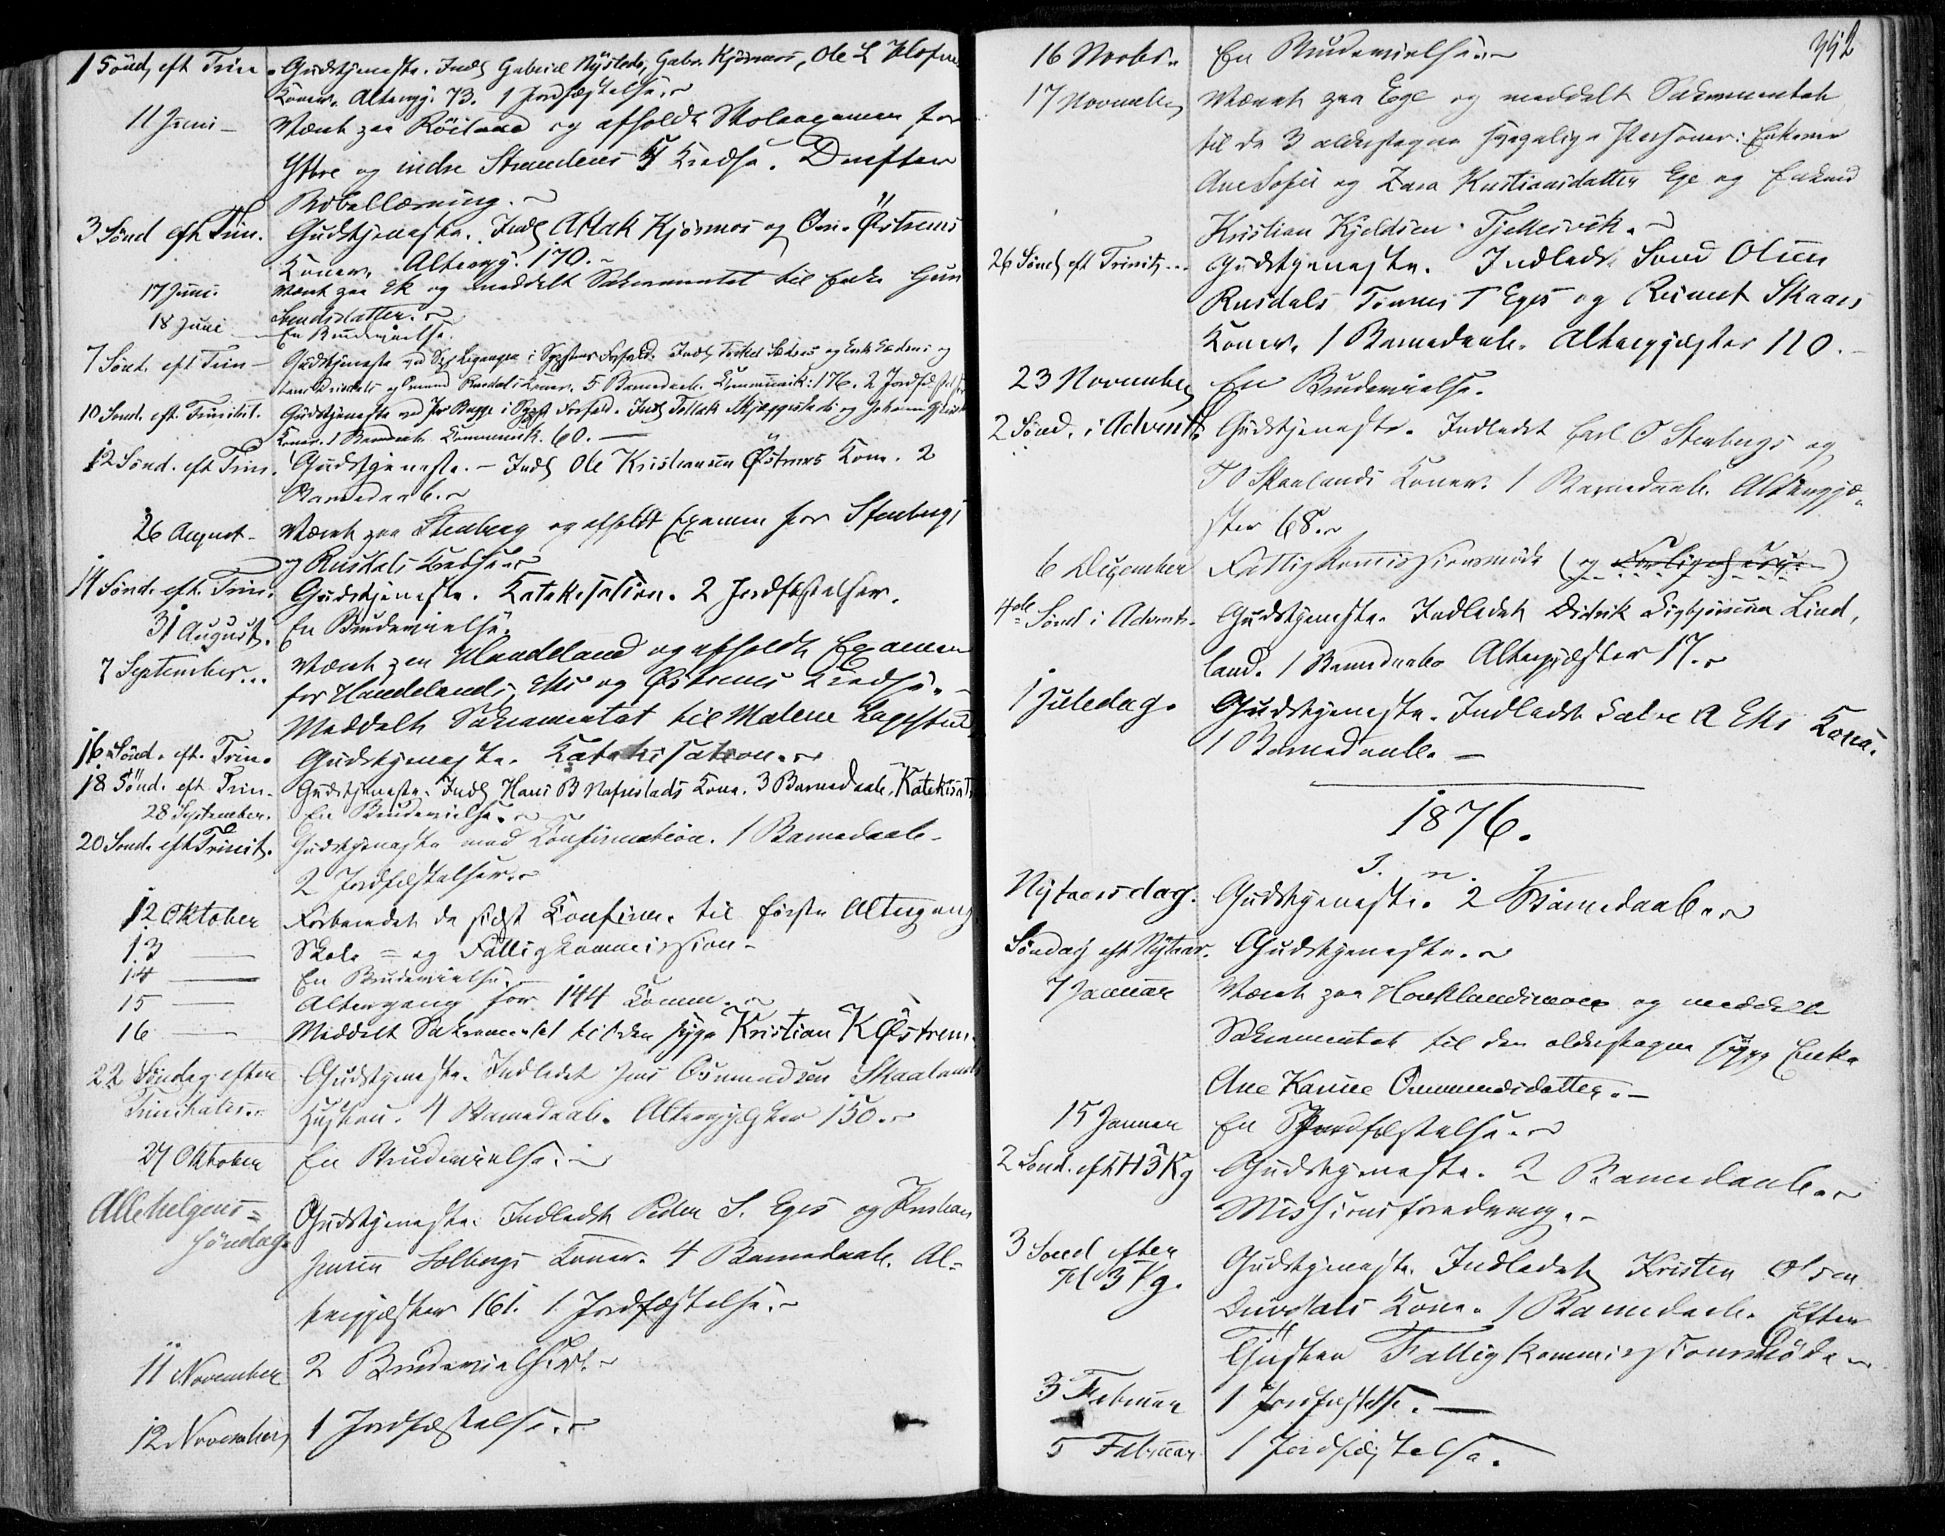 1 Sönd, eft Trin. Gudstjeneste. Indl Gabriel Nysteds, Gabr. Kjörmos, Ole L
Koner. Altergj: 73. 1 Jordfæstelse.
11 Juni - Været paa Röiland og afholdt Skoleexamen for
Ytre og indre Strandens Kredse. Derefter
Bibellæsning.
3 Sönd eft Trin. Gudstjeneste. Indl Aslak Kjörmos og Østrems
Koner. Altergj. 170.
17 Juni. Været paa Ek og meddelt Sakramentet til Enke Gun
Svendsdatter.
18 Juni - En Brudevielse.
7 Sönd. eft Trin - Gudstjeneste ved i Sygdoms Forfald. Indl
og Rusdals Koner. 5 Barnedaab. Kommunik: 176. 2 Jordfæstelser
10 Sönd. eft. Trinitat. Gudstjeneste ved Bugge i Forfald. Indl og Johan
Koner. 1 Barnedaab. Kommunik. 60.
12 Sönd. eft Trin. Gudstjeneste. - Indl Ole Kristensen Östrems Kone. 2
Barnedaab.
26 August - Været paa Stenberg og afholdt Examen for Stenbergs
og Rusdals Kredse.
14 Sönd. eft. Trin. Gudstjeneste. Katekisation. 2 Jordfæstelser.
31 August. En Brudevielse.
7 September... Været paa Haadeland og afholdt Examen
for Haadelands, Eks og Østrems Kredse. -
Meddelt Sakramentet til Malene
16. Sönd. eft. Trin. Gudstjeneste. Katekisation.
18 Sönd. eft Trin. Gudstjeneste. Indl Hans B Nafrestads Kone. 3 Barnedaab. Katekisat
28 September. En Brudevielse.
20 Sönd. eft Trinit. Gudstjeneste med Confirmation. 1 Barnedaab -
2 Jordfæstelser.
12 Oktober Forberedet de sidst Konfirm. til förste Altergang
13 — Skole = og Fattigkommission -
14 — En Brudevielse.
15 — Altergang for 144 Komm.
16 — Meddelt Sakramentet til den syge Kristian K Østrem.
22 Söndag efter Gudstjeneste. Indledet Jens Osmundsen Skaalands
Trinitatis. Hustru. 4 Barnedaab. Altergjæster 150.
27 Oktober En Brudevielse. -
Allehelgens= Gudstjeneste. Indledt Peder S. Eges og Kristian
söndag Jensen Koner. 4 Barnedaab. Al=
tergjæster 161. 1 Jordfæstelse. -
11 November 2 Brudevielser. -
12 November 1 Jordfæstelse.
352
16 Novbr. En Brudevielse. -
17 November Været paa Ege og meddelt Sakramentet
til de 3 alderstegne svagelige Personer: Enkerne
Ane Sofie og Kristiansdatter Ege og Enkemd
Kristian Kjeldsen Tjellesvik.
26 Sönd eft Trinit... Gudstjeneste. Indledt Olsen
Rusdals Tönnes T Eges og Reinert Skaars
Koner. 1 Barnedaab. Altergjæster 110. -
23 November En Brudevielse.
2 Sönd. i Advent. Gudstjeneste. Indledet Carl O Stenbergs og
T O Skaalands Koner. 1 Barnedaab. Altergjæ=
ster 68.
6 December Fattigkommissionsmöde (og )
4de Sönd i Advent. Gudstjeneste. Indledet Didrik Sigbjörnsen Lind,
land. 1 Barnedaab. Altergjæster 17.
1 Juledag. Gudstjeneste. Indledet Salve A Eks Kone.
1 Barnedaab. -
1876.
J. n.
Nytaarsdag. Gudstjeneste. 2 Barnedaab.
Söndag eft Nytaar. Gudstjeneste.
7 Januar Været paa og meddelt
Sakramentet til den alderstegne syge Enke
Ane Karine Ommundsdatter. -
15 Januar En Jordfæstelse.
2 Sönd. eft H3Kg Gudstjeneste. 2 Barnedaab.
Missionsforedrag. -
3 Sönd efter Gudstjeneste. Indledet Kristen Olsen
H 3 Kg. Kone. 1 Barnedaab. Efter
Tjenesten Fattigkommissionsmöde
3 Februar 1 Jordfæstelse. —
5 Februar 1 Jordfæstelse.